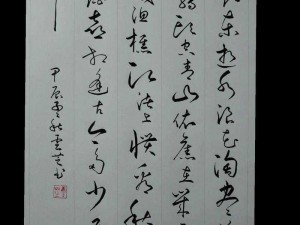 東逝水浪花淘尽
转头空青山依旧在几
渔樵江渚上惯看秋
喜相逢古今多少
甲辰秋雲书